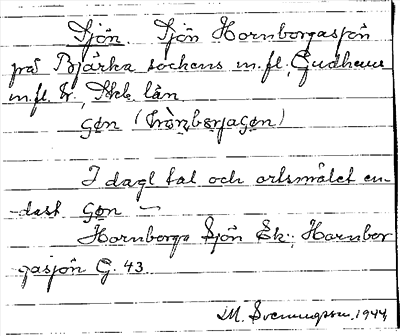 Sjön. Sjön Hornborgasjön
på Bjärka sockens m.fl., Gudhems
m.fl. h., Skb. län.
I dagl tal och ortsmålet en-
-dast
Hornborga Sjön Ek.; Hornbor
gasjön G. 43.
M. Svenungsson. 1944